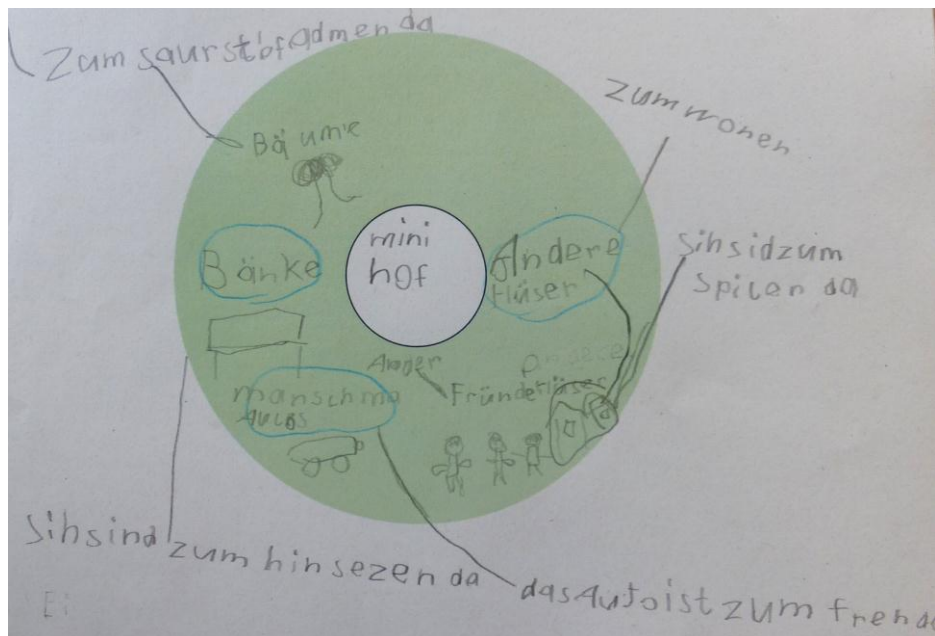 Zum saurstofadmen da
Bäume
Zum wonen
mini
hof
Bänke
Andere
Häuser
Sihsidzum
Spilen da
Ander
Fründe
manschma
Autos
Sihsind zum hinsezen da
das Auto ist zum